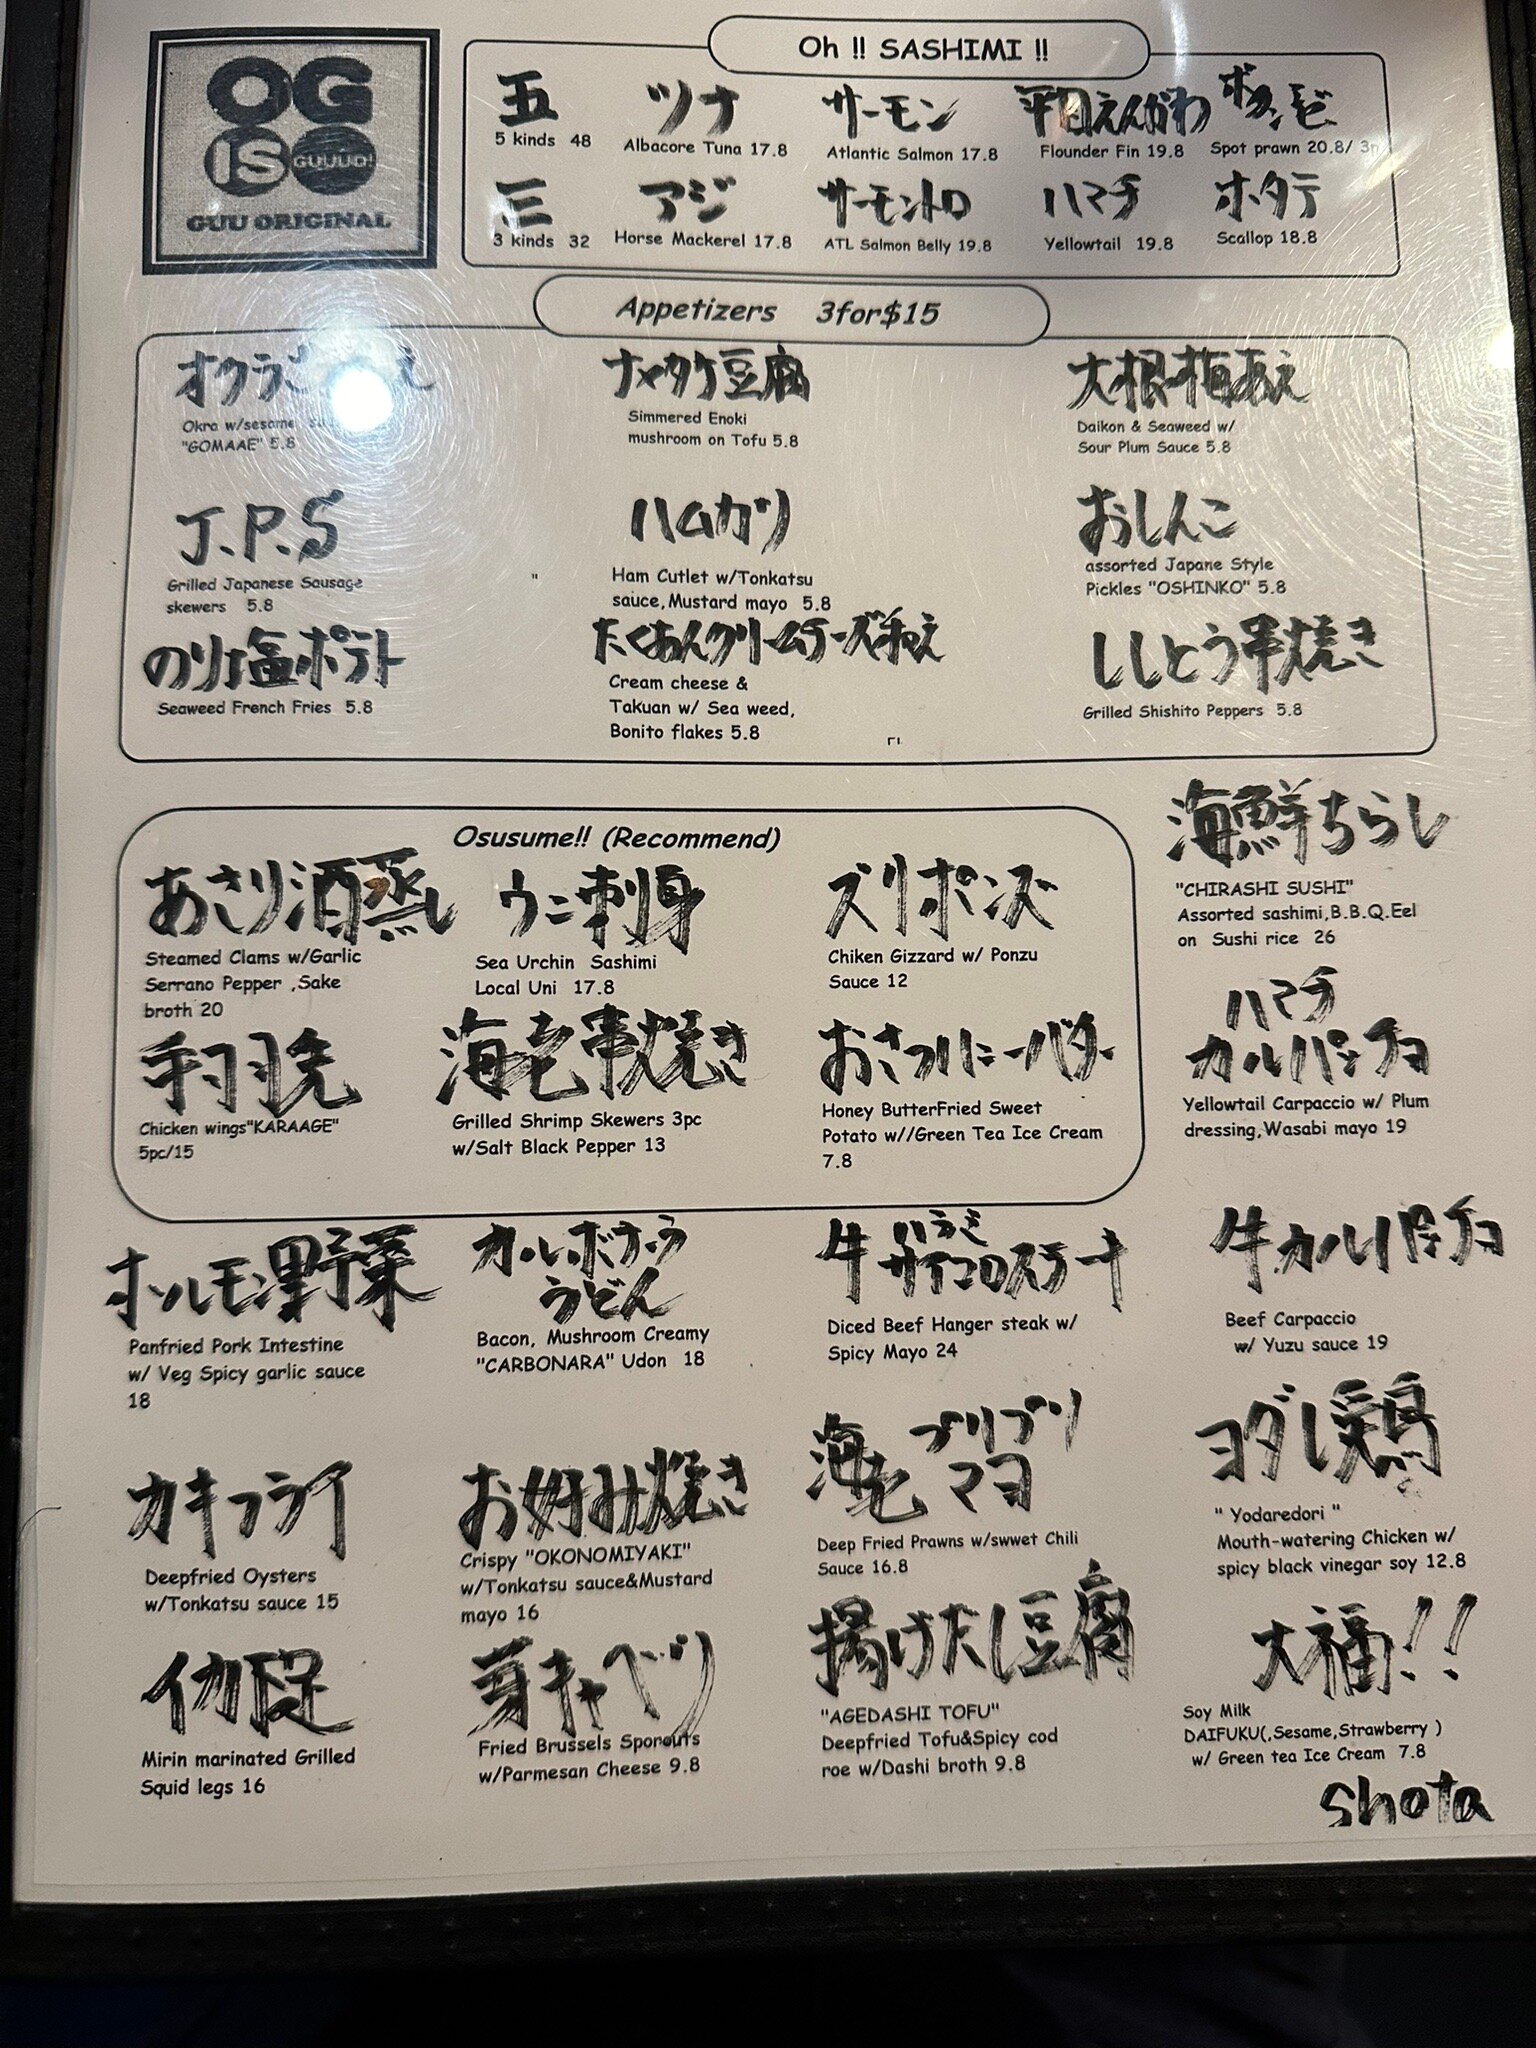 OG
IS GUUUD!
GUU ORIGINAL
Oh !! SASHIMI !!
五
5 kinds 48
ツナ
Albacore Tuna 17.8
サーモン
Atlantic Salmon 17.8
平目えんがわ
Flounder Fin 19.8
Spot prawn 20.8/ 3p
三
3 kinds 32
アジ
Horse Mackerel 17.8
サーモントロ
ATL Salmon Belly 19.8
ハマチ
Yellowtail 19.8
ホタテ
Scallop 18.8
Appetizers 3for$15
オクラ
Okra w/sesame
"GOMAAE" 5.8
ナメタケ豆腐
Simmered Enoki
mushroom on Tofu 5.8
大根梅あえ
Daikon & Seaweed w/
Sour Plum Sauce 5.8
J.P.S
Grilled Japanese Sausage
skewers 5.8
ハムカツ
Ham Cutlet w/Tonkatsu
sauce,Mustard mayo 5.8
おしんこ
assorted Japane Style
Pickles "OSHINKO" 5.8
のり塩ポテト
Seaweed French Fries 5.8
たくあんクリームチーズ和え
Cream cheese &
Takuan w/ Sea weed,
Bonito flakes 5.8
ししとう串焼き
Grilled Shishito Peppers 5.8
Osusume!! (Recommend)
あさり酒蒸し
Steamed Clams w/Garlic
Serrano Pepper ,Sake
broth 20
ウニ刺身
Sea Urchin Sashimi
Local Uni 17.8
ズリポンズ
Chiken Gizzard w/ Ponzu
Sauce 12
手羽先
Chicken wings"KARAAGE"
5pc/15
海老串焼き
Grilled Shrimp Skewers 3pc
w/Salt Black Pepper 13
おさつハニーバター
Honey ButterFried Sweet
Potato w//Green Tea Ice Cream
7.8
海鮮ちらし
"CHIRASHI SUSHI"
Assorted sashimi,B.B.Q.Eel
on Sushi rice 26
ハマチ
カルパッチョ
Yellowtail Carpaccio w/ Plum
dressing,Wasabi mayo 19
ホルモン野菜
Panfried Pork Intestine
w/ Veg Spicy garlic sauce
18
カルボナーラ
うどん
Bacon, Mushroom Creamy
"CARBONARA" Udon 18
牛ハラミ
サイコロステーキ
Diced Beef Hanger steak w/
Spicy Mayo 24
牛カルパッチョ
Beef Carpaccio
w/ Yuzu sauce 19
カキフライ
Deepfried Oysters
w/Tonkatsu sauce 15
お好み焼き
Crispy "OKONOMIYAKI"
w/Tonkatsu sauce&Mustard
mayo 16
海老プリプリ
マヨ
Deep Fried Prawns w/swwet Chili
Sauce 16.8
ヨダレ鶏
" Yodaredori "
Mouth-watering Chicken w/
spicy black vinegar soy 12.8
イカ足
Mirin marinated Grilled
Squid legs 16
芽キャベツ
Fried Brussels Sporouts
w/Parmesan Cheese 9.8
揚げだし豆腐
"AGEDASHI TOFU"
Deepfried Tofu&Spicy cod
roe w/Dashi broth 9.8
大福!!
Soy Milk
DAIFUKU(,Sesame,Strawberry )
w/ Green tea Ice Cream 7.8
shota